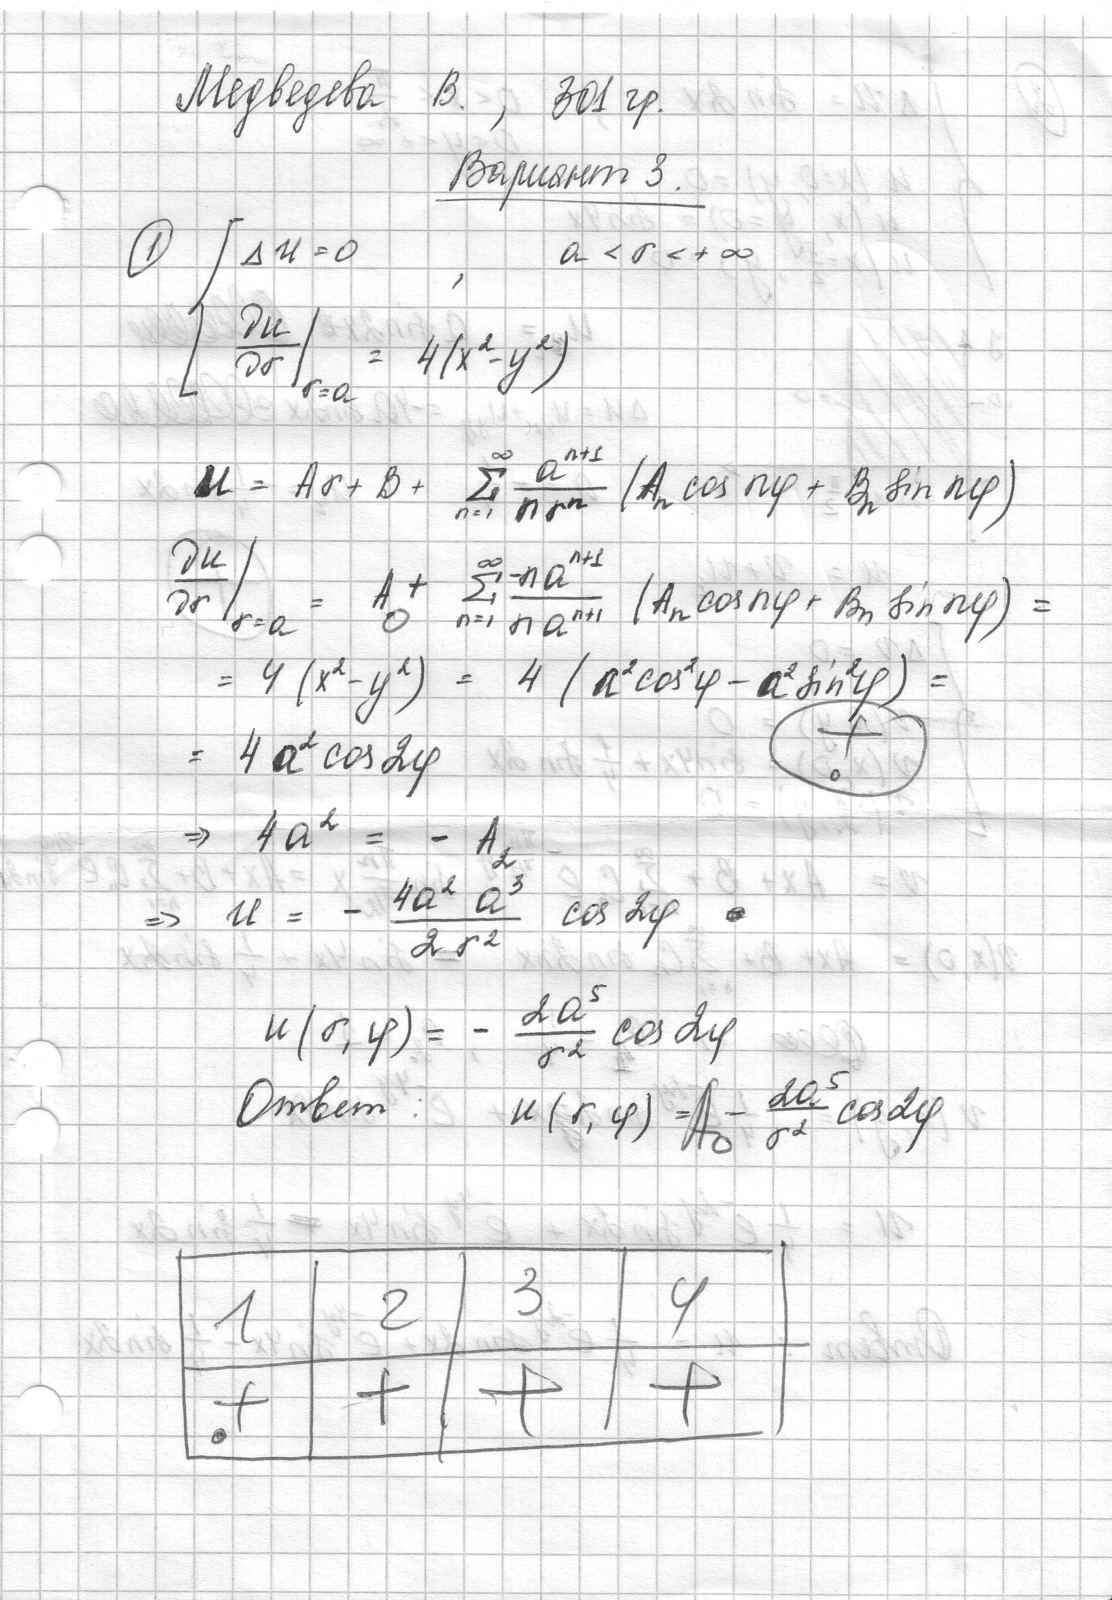 Медведева В., 301 гр.
Вариант 3.
① { Δu = 0 , a < r < +∞
∂u/∂r |_{r=a} = 4(x² - y²)
u = Ar + B + ∑_{n=1}^{∞} a^{n+1}/(n rⁿ) (Aₙ cos nφ + Bₙ sin nφ)
∂u/∂r |_{r=a} = A₀ + ∑_{n=1}^{∞} -na^{n+1}/(na^{n+1}) (Aₙ cos nφ + Bₙ sin nφ) =
= 4(x² - y²) = 4(a² cos²φ - a² sin²φ) =
= 4a² cos 2φ
+.
⇒ 4a² = - A₂
⇒ u = - (4a² a³)/(2r²) cos 2φ
u(r, φ) = - 2a⁵/r² cos 2φ
Ответ: u(r, φ) = A₀ - 2a⁵/r² cos 2φ
1 2 3 4
.+ + + +